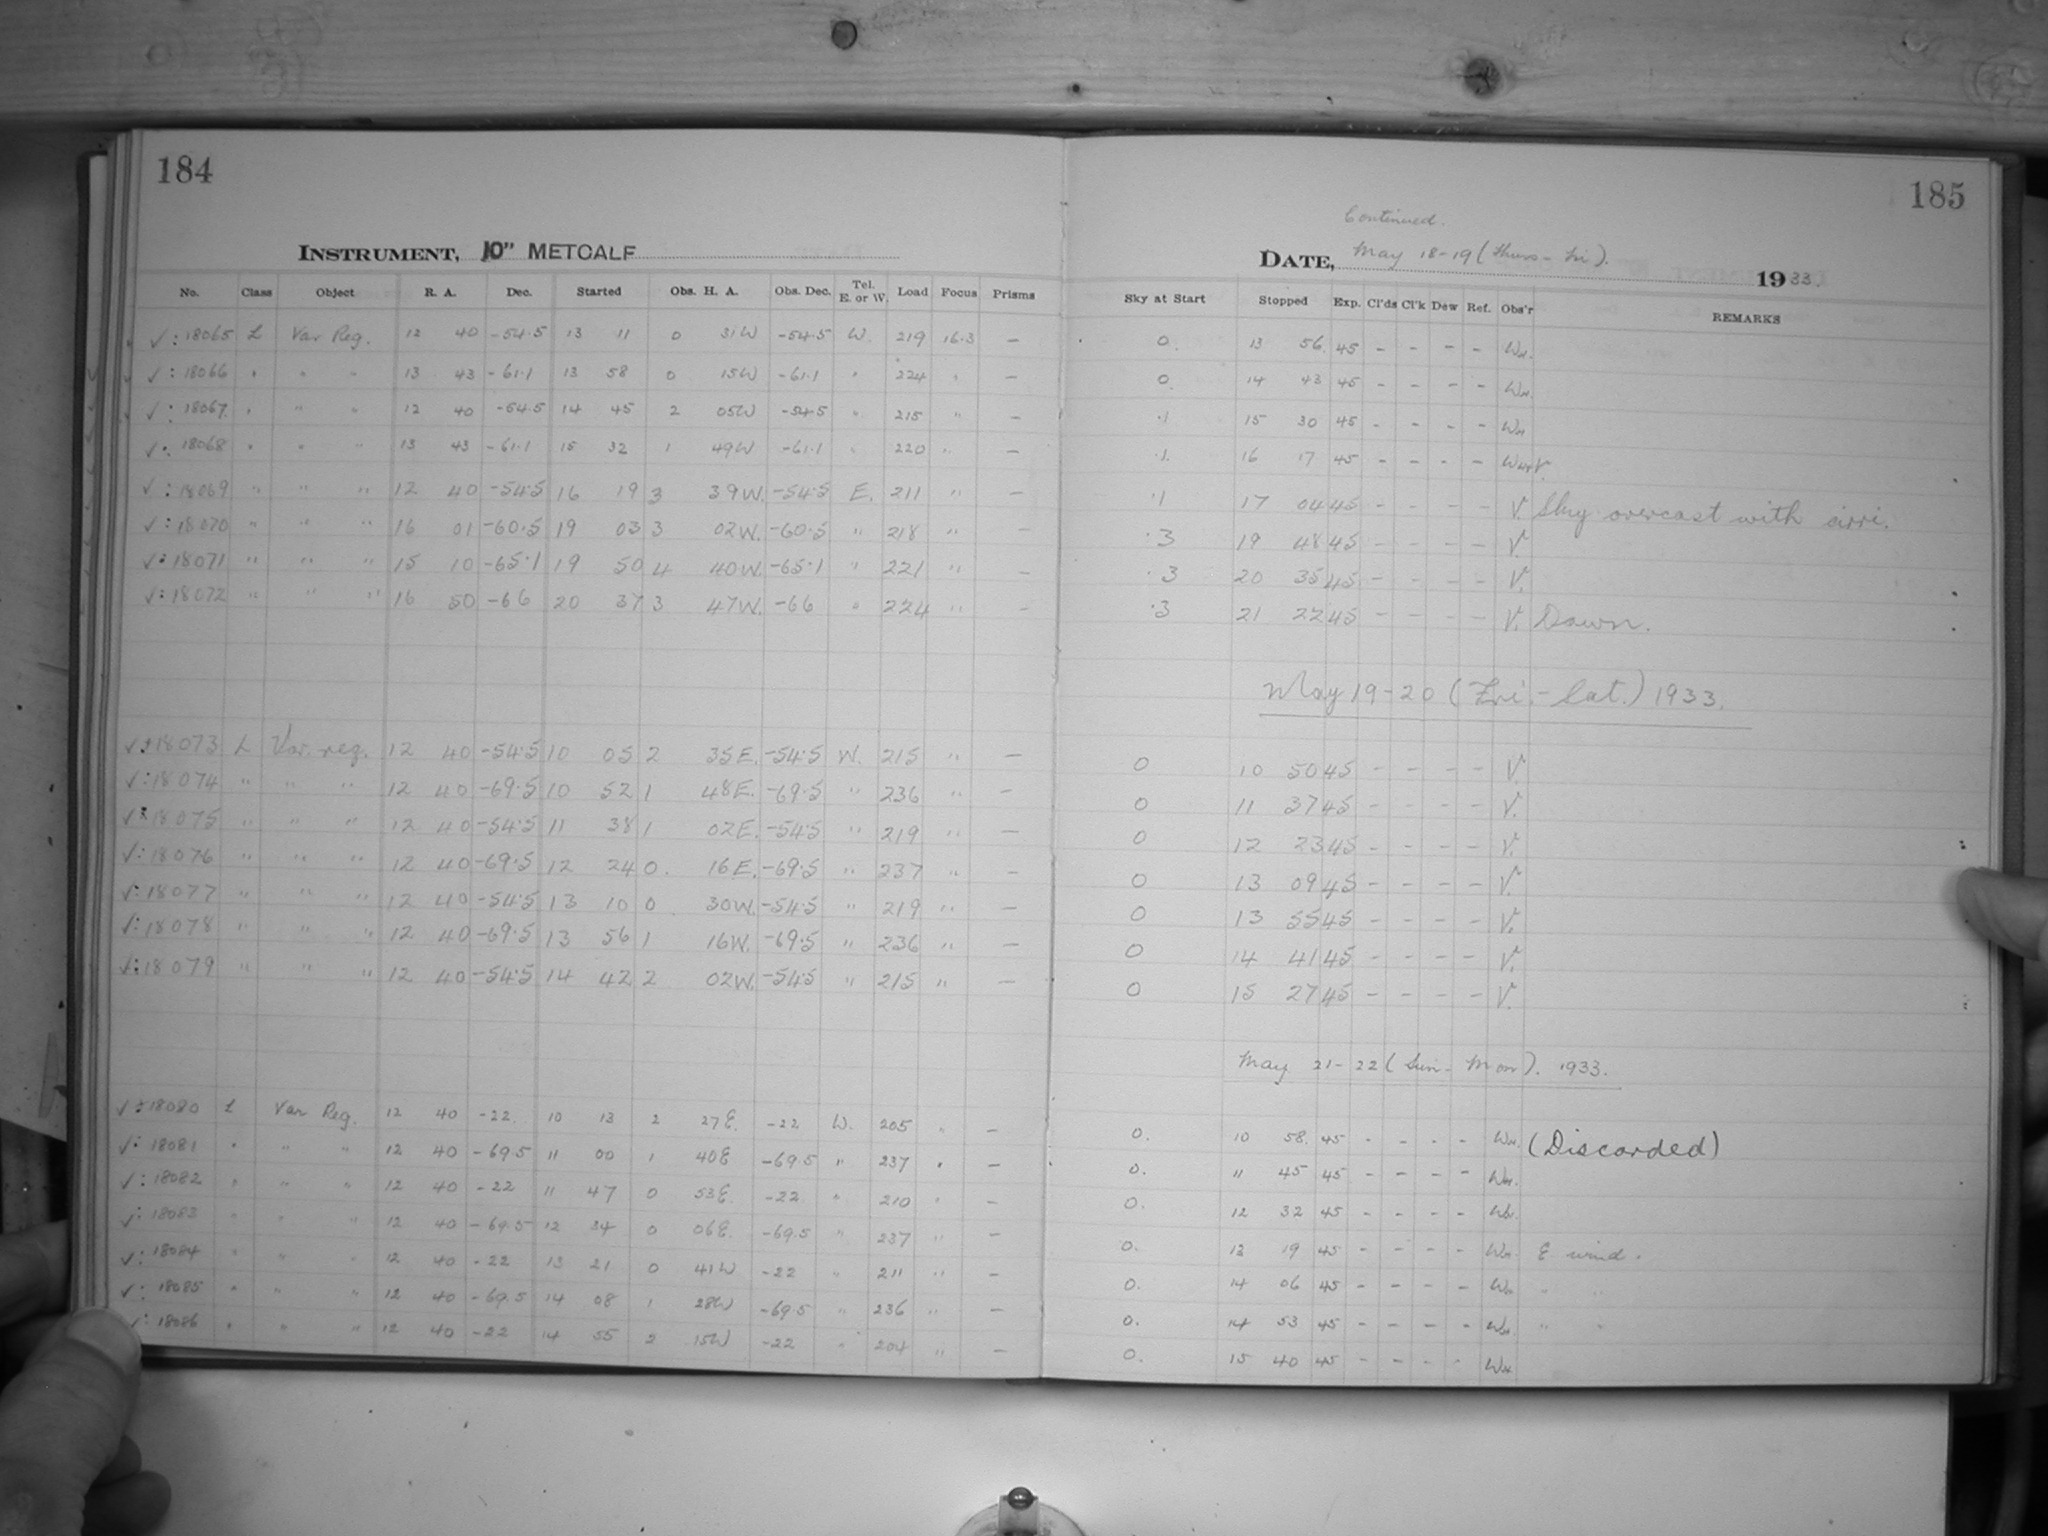 184
INSTRUMENT, 10" METCALF
No. Class Object R. A. Dec. Started Obs. H. A. Obs. Dec. Tel. E. or W. Load Focus Prisms
✓: 18065 L Var Reg. 12 40 -54.5 13 11 0 31W -54.5 W. 219 16.3 —
✓: 18066 " " " 13 43 -61.1 13 58 0 15W -61.1 " 224 " —
✓: 18067 " " " 12 40 -54.5 14 45 2 05W -54.5 " 215 " —
✓: 18068 " " " 13 43 -61.1 15 32 1 49W -61.1 " 220 " —
✓: 18069 " " " 12 40 -54.5 16 19 3 39W. -54.5 E. 211 " —
✓: 18070 " " " 16 01 -60.5 19 03 3 02W. -60.5 " 218 " —
✓: 18071 " " " 15 10 -65.1 19 50 4 40W. -65.1 " 221 " —
✓: 18072 " " " 16 50 -66 20 37 3 47W. -66 " 224 " —
✓: 18073 L Var. reg. 12 40 -54.5 10 05 2 35E. -54.5 W. 215 " —
✓: 18074 " " " 12 40 -69.5 10 52 1 48E. -69.5 " 236 " —
✓: 18075 " " " 12 40 -54.5 11 38 1 02E. -54.5 " 219 " —
✓: 18076 " " " 12 40 -69.5 12 24 0. 16E. -69.5 " 237 " —
✓: 18077 " " " 12 40 -54.5 13 10 0 30W. -54.5 " 219 " —
✓: 18078 " " " 12 40 -69.5 13 56 1 16W. -69.5 " 236 " —
✓: 18079 " " " 12 40 -54.5 14 42 2 02W. -54.5 " 215 " —
✓: 18080 L Var Reg. 12 40 -22. 10 13 2 27E. -22 W. 205 " —
✓: 18081 " " " 12 40 -69.5 11 00 1 40E -69.5 " 237 " —
✓: 18082 " " " 12 40 -22 11 47 0 53E. -22 " 210 " —
✓: 18083 " " " 12 40 -69.5 12 34 0 06E. -69.5 " 237 " —
✓: 18084 " " " 12 40 -22 13 21 0 41W -22 " 211 " —
✓: 18085 " " " 12 40 -69.5 14 08 1 28W -69.5 " 236 " —
✓: 18086 " " " 12 40 -22 14 55 2 15W -22 " 204 " —
185
Continued.
DATE, May 18-19 (Thurs-Fri). 1933.
Sky at Start Stopped Exp. Cl'ds Cl'k Dew Ref. Obs'r REMARKS
0. 13 56. 45 - - - - Wn.
0. 14 43 45 - - - - Wn.
.1 15 30 45 - - - - Wn
.1. 16 17 45 - - - -
.1 17 04 45 - - - - V. Sky overcast with cirri.
.3 19 48 45 - - - - V.
.3 20 35 45 - - - - V.
.3 21 22 45 - - - - V. Dawn.
May 19-20 (Fri.-Sat.) 1933.
0 10 50 45 - - - - V.
0 11 37 45 - - - - V.
0 12 23 45 - - - - V.
0 13 09 45 - - - - V.
0 13 55 45 - - - - V.
0 14 41 45 - - - - V.
0 15 27 45 - - - - V.
May 21-22 (Sun-Mon). 1933.
0. 10 58. 45 - - - - Wn. (Discarded)
0. 11 45 45 - - - - Wn.
0. 12 32 45 - - - - Wn.
0. 13 19 45 - - - - Wn. E wind.
0. 14 06 45 - - - - Wn " "
0. 14 53 45 - - - - Wn. " "
0. 15 40 45 - - - - Wn